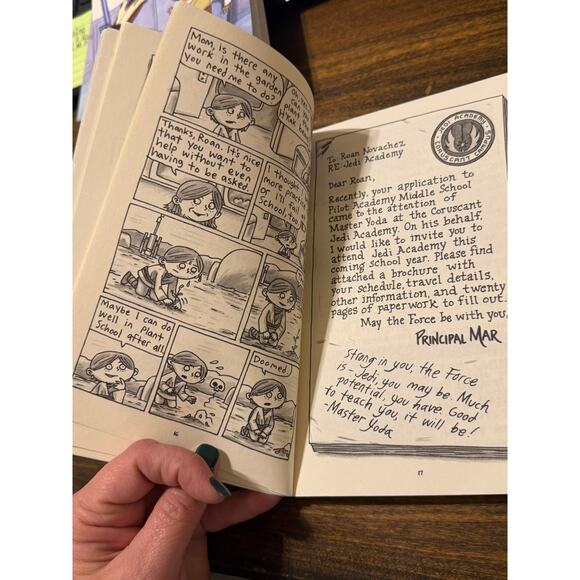 Mom, is there any
work in the garden
you need me to do?
Thanks, Roan. It's nice
that you want to
help without even
having to be asked.
I thought
more practi
or I'll fail
School, too
Maybe I can do
well in Plant
School after all.
Doomed.
16
JEDI ACADEMY
CORUSCANT CAMPUS
To: Roan Novachez
RE: Jedi Academy
Dear Roan,
Recently, your application to
Pilot Academy Middle School
came to the attention of
Master Yoda at the Coruscant
Jedi Academy. On his behalf,
I would like to invite you to
attend Jedi Academy this
coming school year. Please find
attached a brochure with
your schedule, travel details,
other information, and twenty
pages of paperwork to fill out.
May the Force be with you,
PRINCIPAL MAR
Strong in you, the Force
is - Jedi, you may be. Much
potential, you have. Good
to teach you, it will be!
-Master Yoda
17